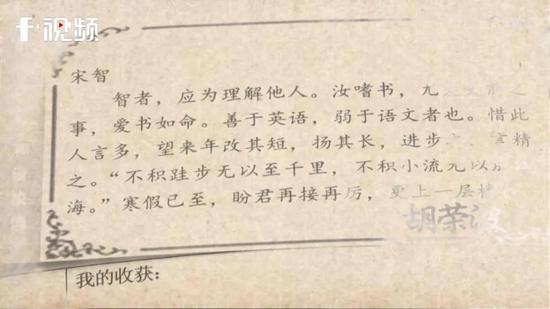 f·视频
宋智
智者，应为理解他人。汝嗜书，九
事，爱书如命。善于英语，弱于语文者也。惜此
人言多，望来年改其短，扬其长，进步 精
之。“不积跬步无以至千里，不积小流无以
海。”寒假已至，盼君再接再厉，更上一层楼
胡荣
我的收获：